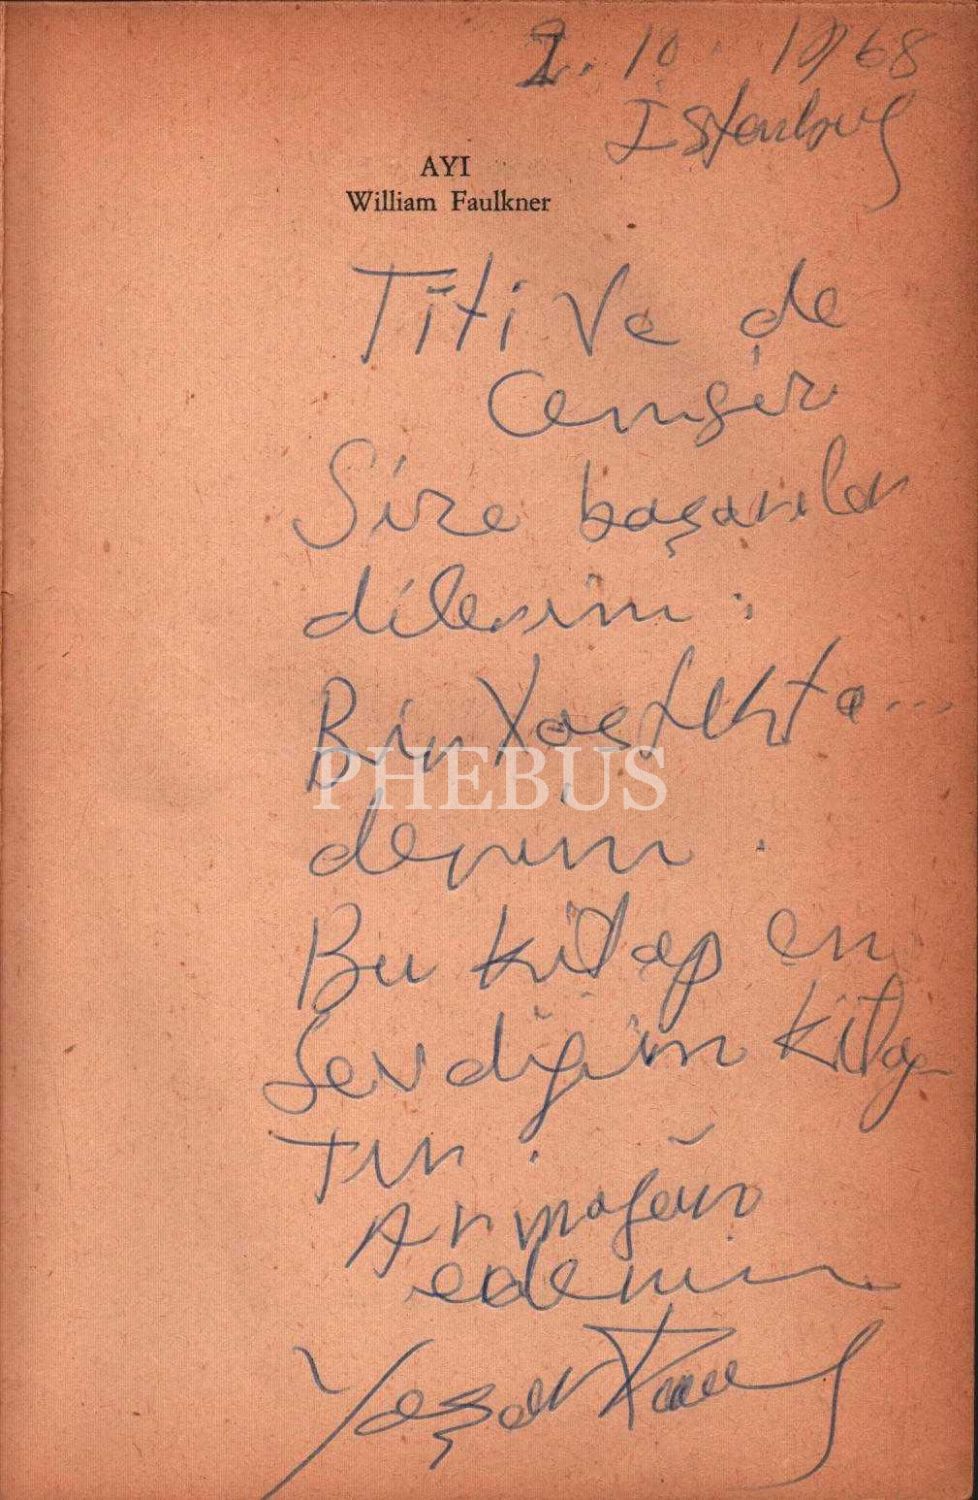 2. 10. 1968
İstanbul
AYI
William Faulkner
Titi ve de
Cengiz
Size başarılar
dilerim.
Bir Yastıkta...
derim.
Bu kitap en
sevdiğim kitap
tır.
Armağan
ederim
Yaşar Kemal
PHEBUS